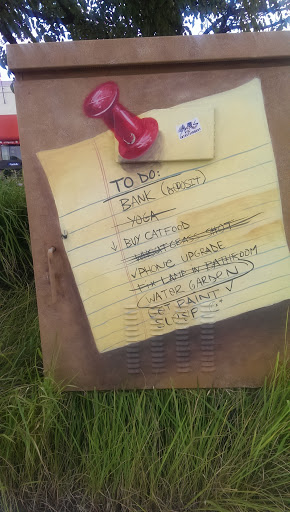 TO DO:
BANK (DEPOSIT)
YOGA
BUY CATFOOD
PHONE UPGRADE
FIX LAMP IN BATHROOM
WATER GARDEN
GET PAINT
SLEEP